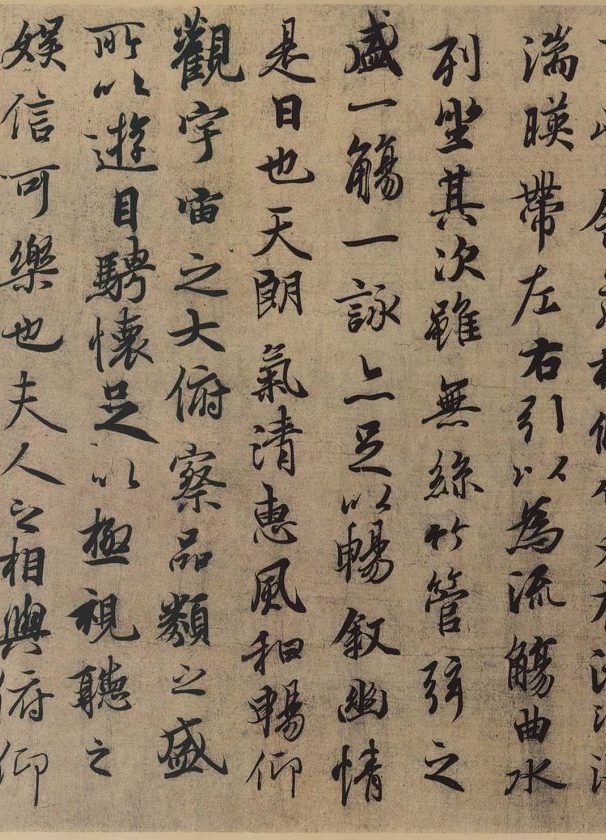 湍暎帶左右引以為流觴曲水
列坐其次雖無絲竹管弦之
盛一觴一詠亦足以暢叙幽情
是日也天朗氣清惠風和暢仰
觀宇宙之大俯察品類之盛
所以遊目騁懷足以極視聽之
娛信可樂也夫人之相與俯仰